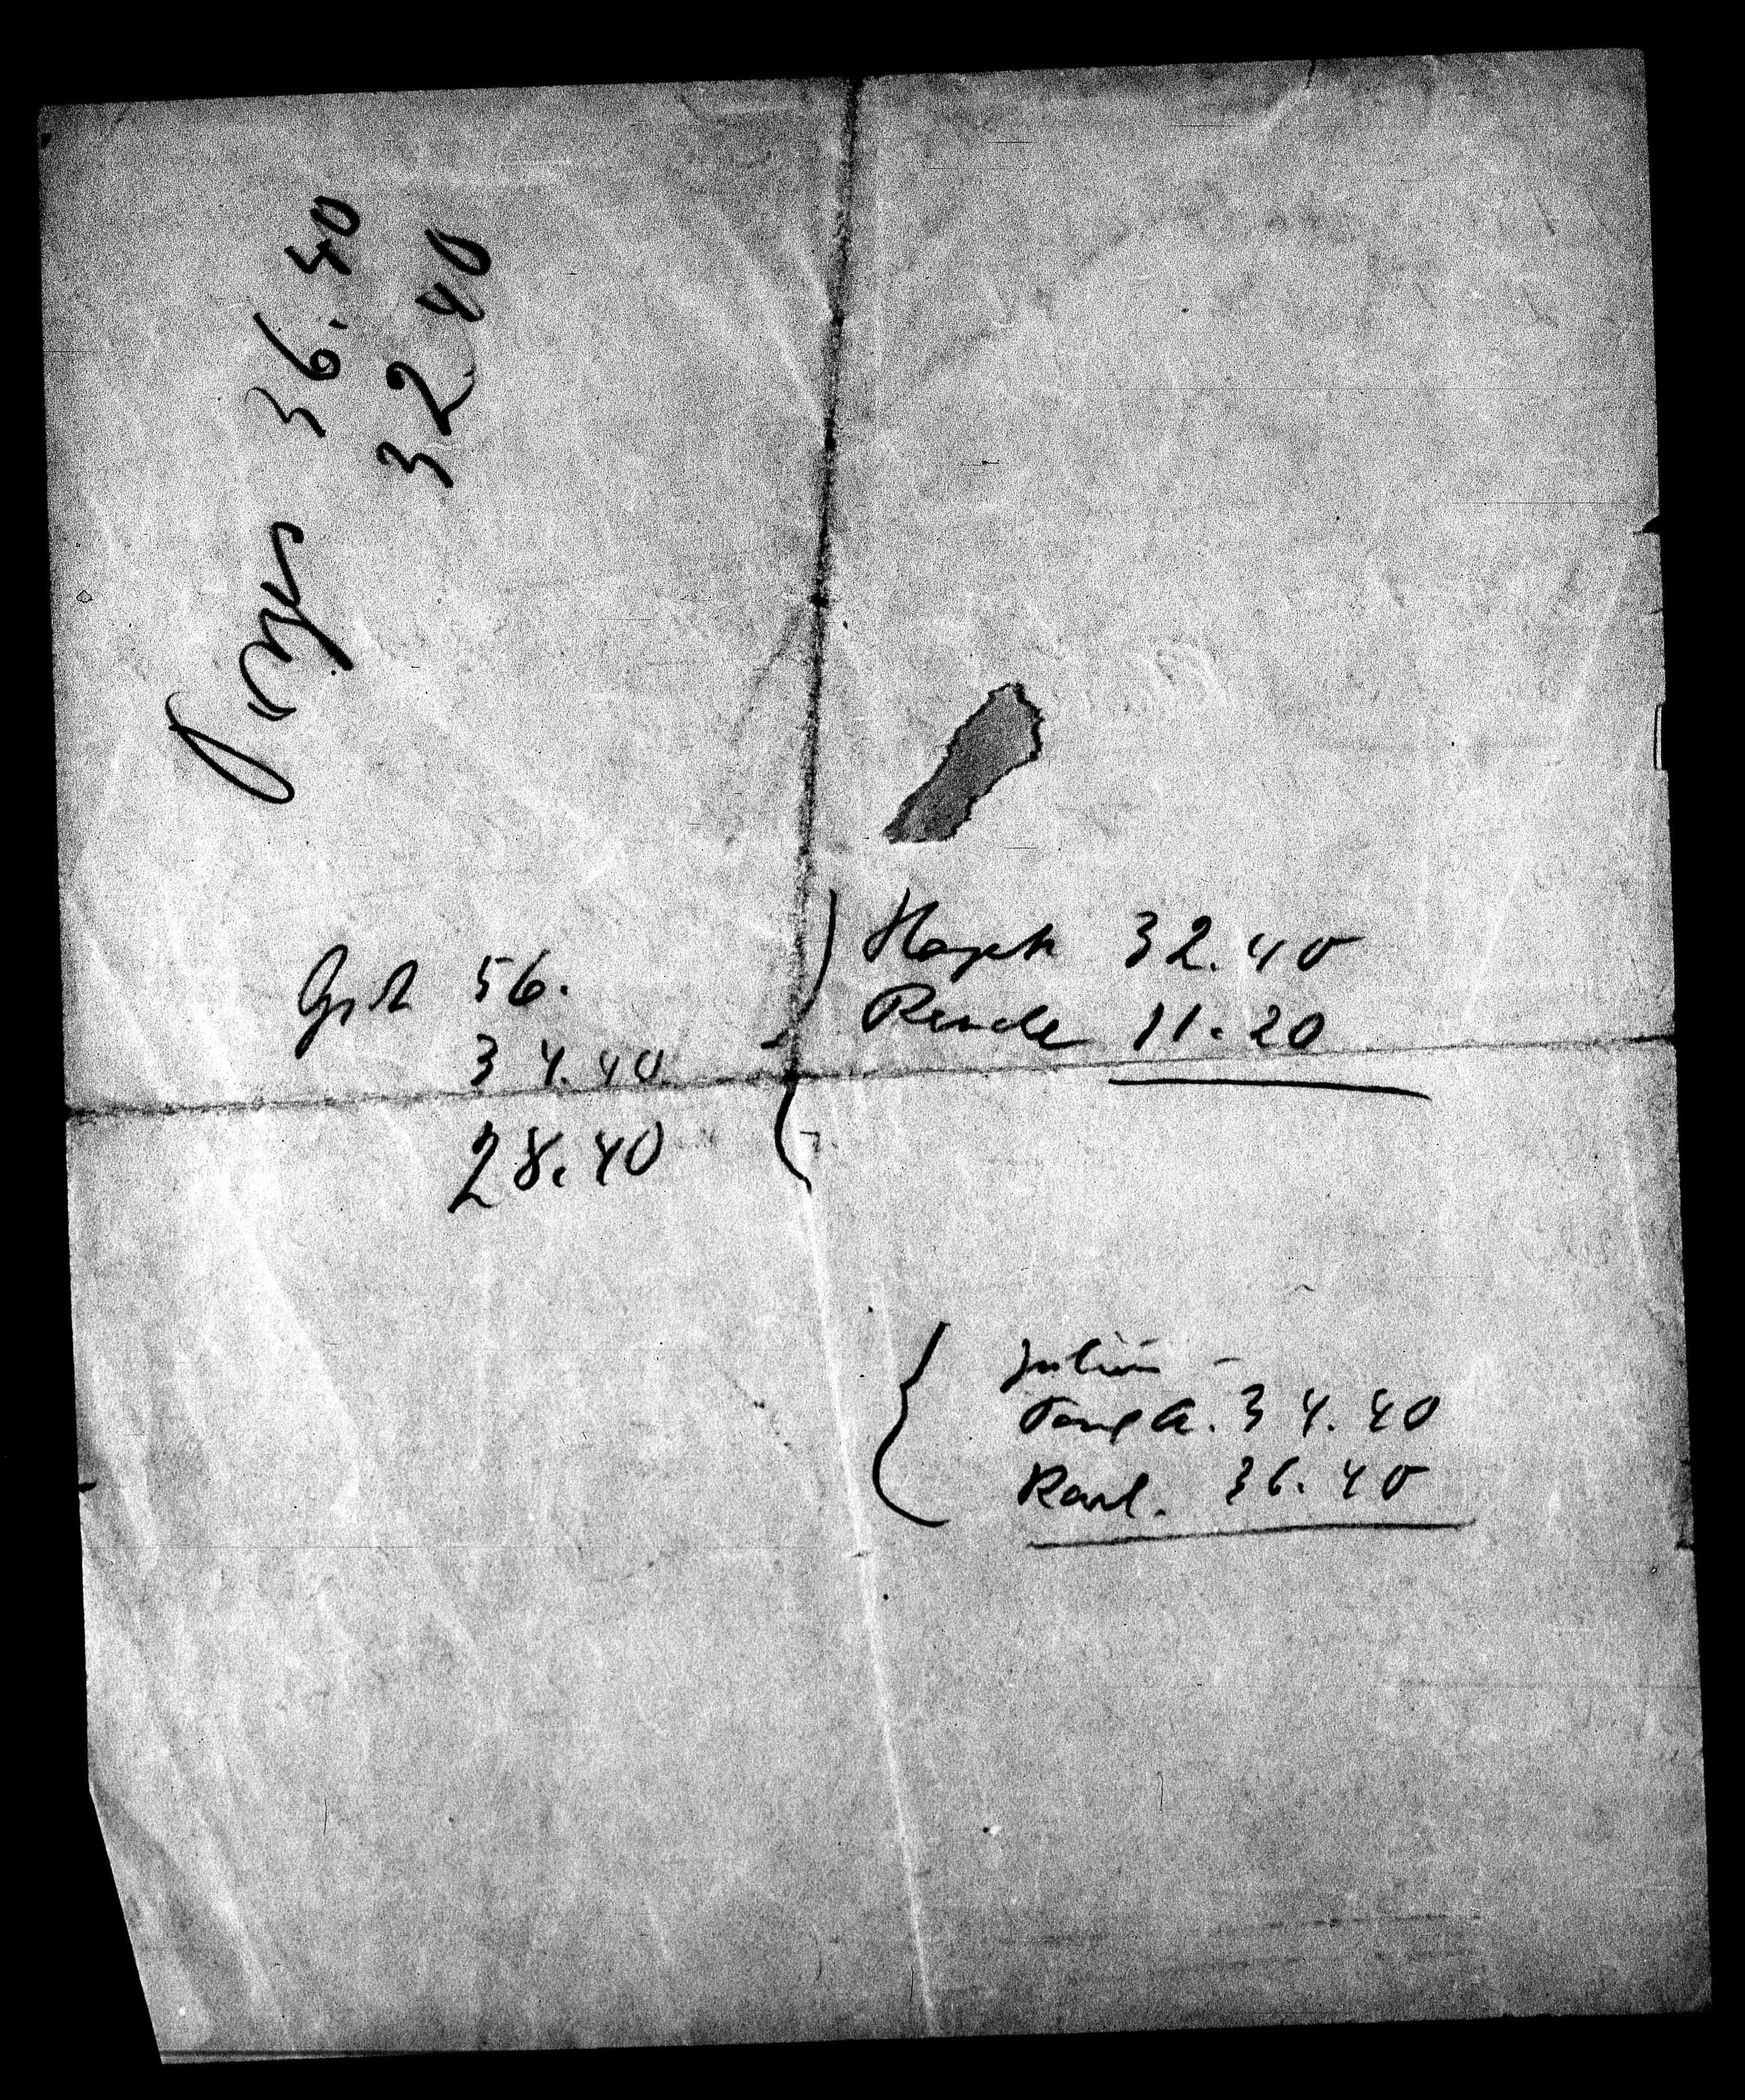 36.40
32.40
56.
34.40
28.40
32.40
11.20
Julius -
34.40
Karl. 36.40